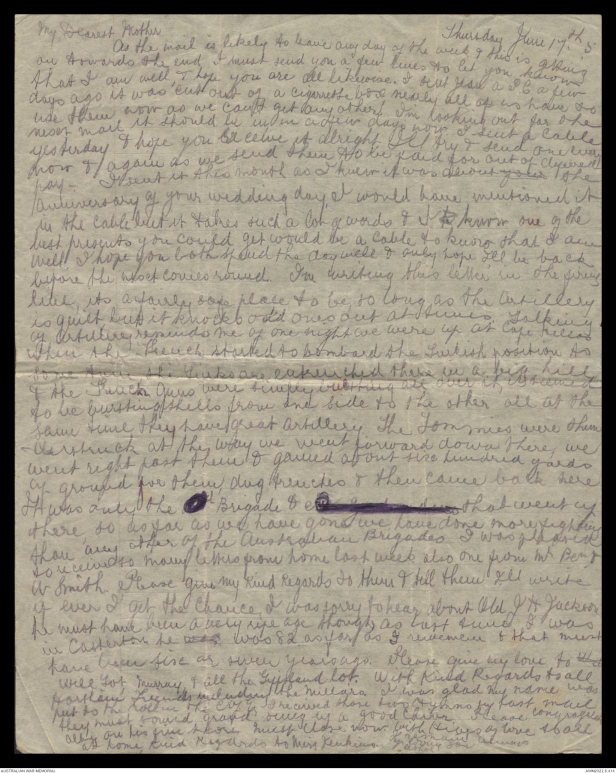 My Dearest Mother
Thursday June 17th 5
As the mail is likely to leave any day of the week & this is getting
on towards the end, I must send you a few lines to let you know
that I am well & hope you are all likewise. I sent you a P.C a few
days ago it was cut out of a cigarette box nearly all of us have to
use them now as we can't get any other. I'm looking out for the
next mail, it should be in in a few days now. I sent a cable
yesterday & hope you receive it alright I'll try & send one every
now & again as we send them to be paid for out of deferred
pay. I sent it this month as I knew it was about your the
anniversary of your wedding day I would have mentioned it
in the cable but it takes such a lot of words & I know one of the
best presents you could get would be a cable to know that I am
well. I hope you both spend the day well & only hope I'll be back
before the next comes round. I'm writing this letter in the firing
line, its a fairly safe place to be, so long as the Artillery
is quiet but it knocks odd ones out at times. Talking
of artillery reminds me of one night we were up at Cape Helles
when the French started to bombard the Turkish position to
some tune the Turks are entrenched there in a big hill
& the French Guns were simply bursting all over it, it seemed
to be bursting shells from one side to the other all at the
same time they have great Artillery. The Tommies were thun
derstruck at the way we went forward down there, we
went right past them & gained about six hundred yards
of ground for them, dug trenches & then came back here
It was only the Brigade & that went up
there so as far as we have gone we have done more fighting
than any other of the Australian Brigades. I was pleased
to receive so many letters from home last week also one from Mr
W Smith. Please give my kind regards to them & tell them I'll write
if ever I get the chance, I was sorry to hear about Old J H Jackson
he must have been a very ripe age though, as last time I was
in Casterton he was 82 as far as I remember & that must
have been six or seven years ago. Please give my love to
Will Murray & all the Gippsland lot. With Kind Regards to all
Portland friends including the Millars. I was glad my name was
put on the roll in the I received those two Hymns by past mail
they must sound grand sung by a good Choir. Please congratulate
all for me Must close now with love to all
at home Kind Regards to Miss